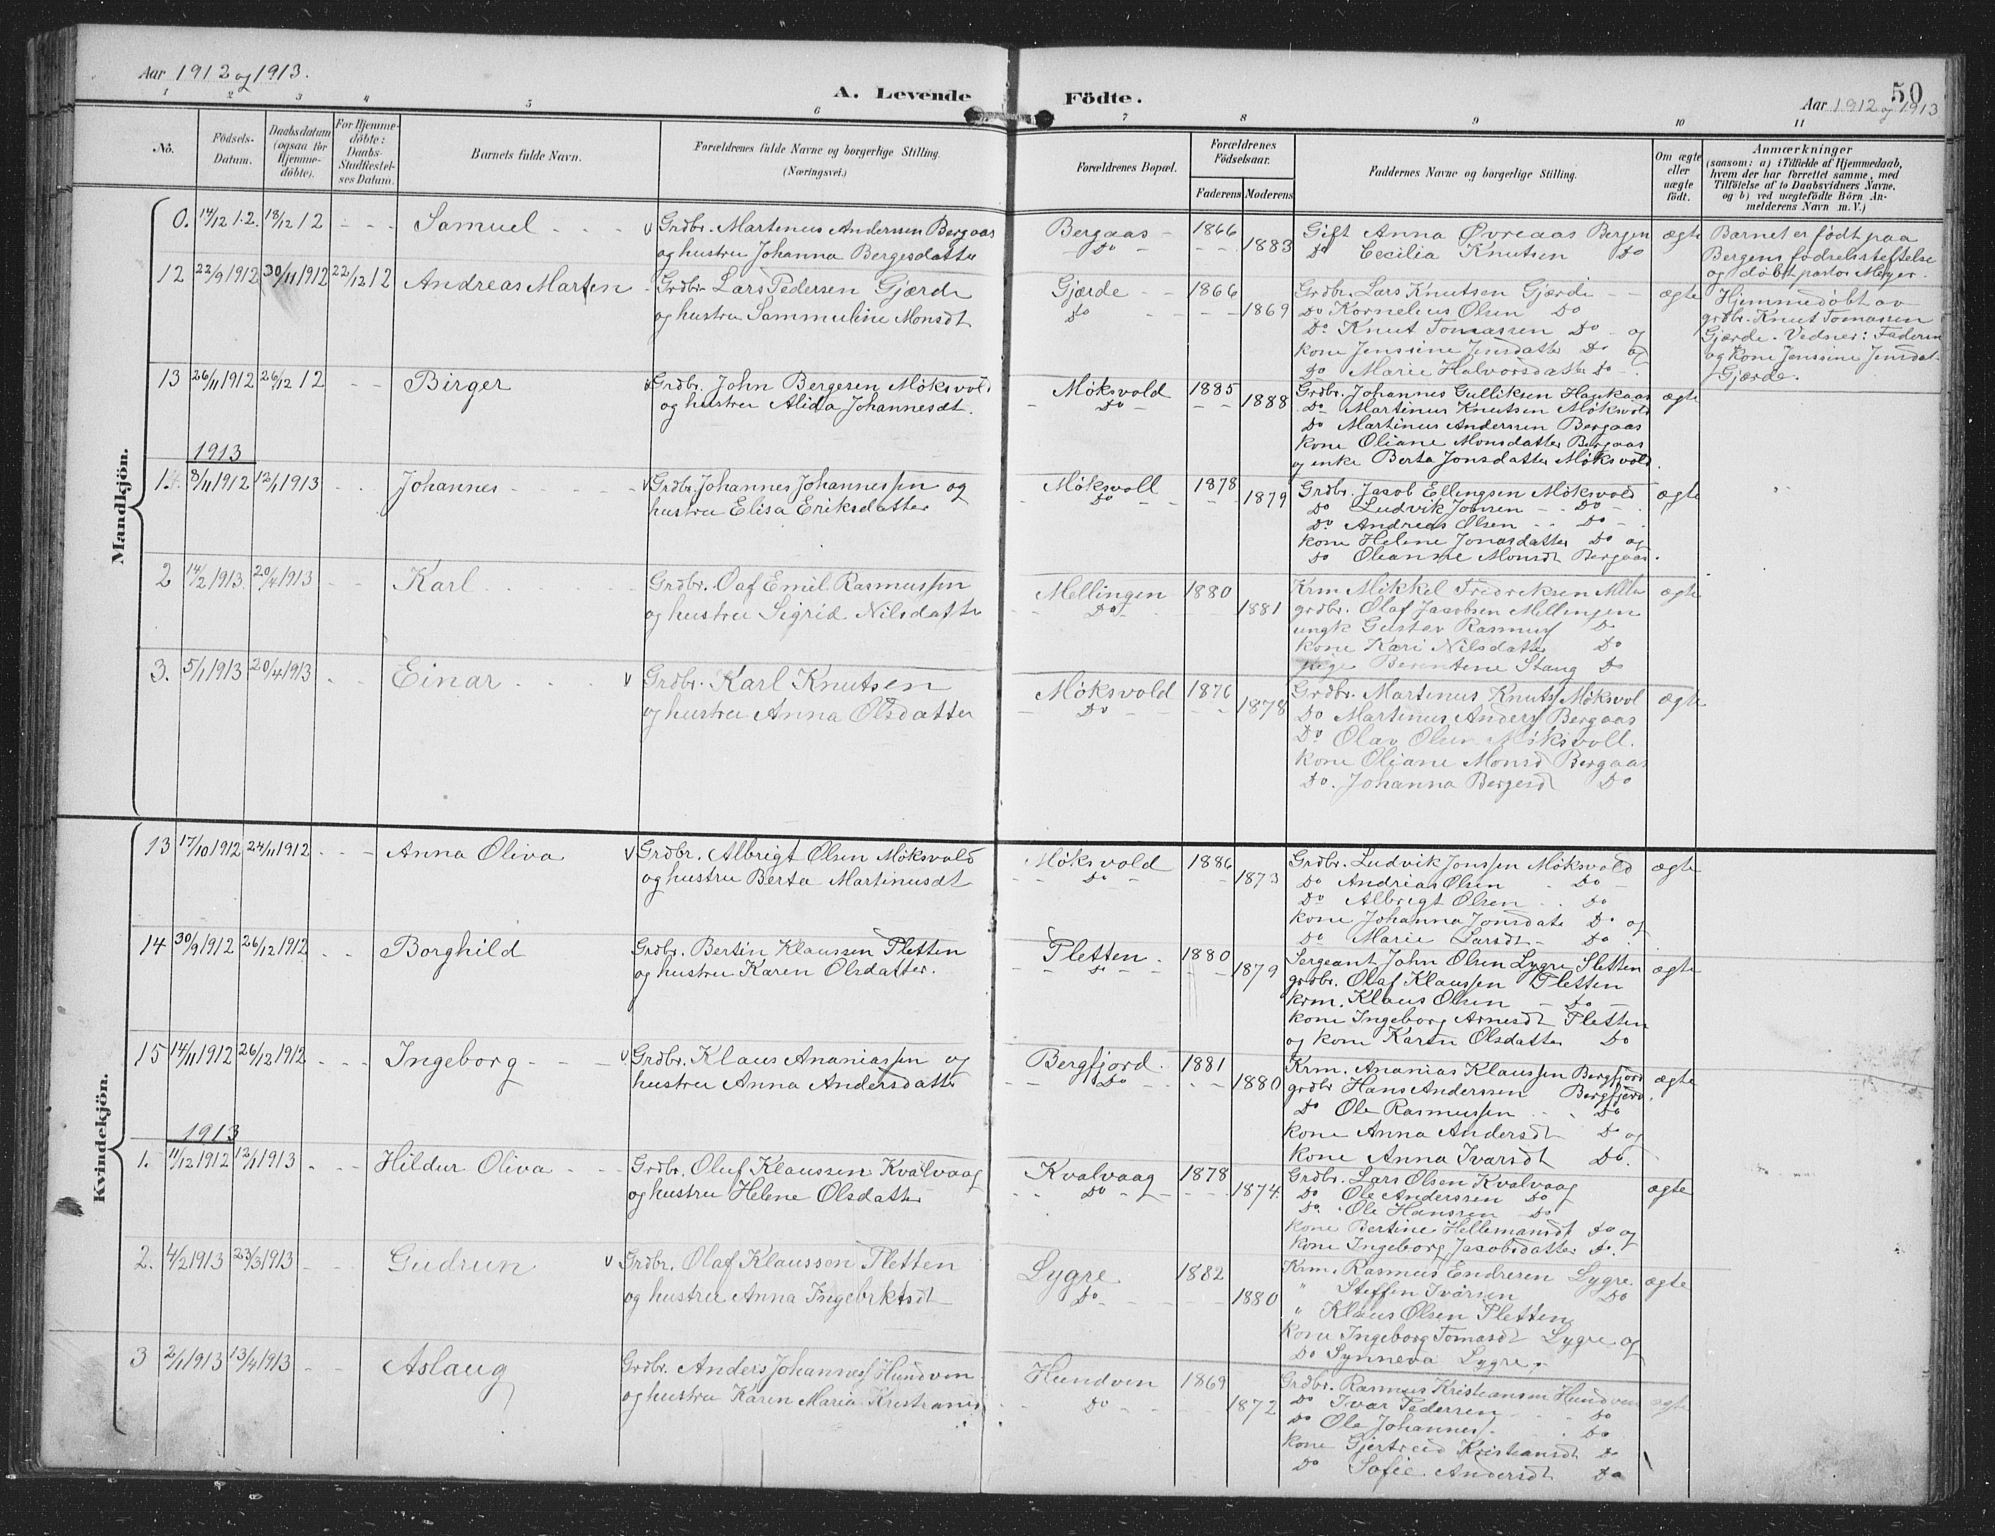 Aar 1912 og 1913.
A. Levende Födte.
50
Aar 1912 og 1913
1 2 3 4 5 6 7 8 9 10 11
No.
Födsels-Datum.
Daabsdatum (ogsaa for Hjemme-döbte).
For Hjemme-döbte: Daabs-Stadfæstelses Datum.
Barnets fulde Navn.
Forældrenes fulde Navne og borgerlige Stilling. (Næringsvei.)
Forældrenes Bopæl.
Forældrenes Födselsaar.
Faderens Moderens
Faddernes Navne og borgerlige Stilling.
Om ægte eller uægte födt.
Anmærkninger
(saasom: a) i Tilfælde af Hjemmedaab,
hvem der har forrettet samme, med
Tilföielse af to Daabsvidners Navne,
og b) ved uægtefödte Börn An-
melderens Navn m. V.)
Mandkjön.
0. 14/12 12. 18/12 12 Samuel v Grdbr. Martinus Andersen Bergaas Bergaas 1866 Gift Anna Øvreaas Bergen ægte Barnet er født paa
og hustru Johanna Bergesdatter Do 1883 Do Cecilia Knutsen Do Bergens fødselsstiftelse
og døbt pastor Meyer.
12 22/9 1912 30/11 1912 22/12 12 Andreas Marten Grdbr. Lars Pedersen Gjærde Gjærde 1866 Grdbr. Lars Knutsen Gjærde ægte Hjemmedøbt av
og hustru Sammuline Monsdt Do 1869 Do Kornelius Olsen Do grdbr. Knut Tomassen
Do Knut Tomassen Do og Gjærde. Vedner: Faderen
kone Jenssine Jensdatter Do og og Kone Jenssine Jensdat
Do Marie Halvorsdatter Do Gjærde.
13 26/11 1912 26/12 12 Birger v Grdbr. John Bergesen Møksvold Møksvold 1885 Grdbr. Johannes Gulliksen Haukaas ægte
og hustru Alida Johannesdt. Do 1888 Do Martinus Knutsen Møksvold
Do Martinus Anderssen Bergaas
kone Oliane Monsdatter Bergaas
og enke Berta Jonsdatter Møksvold.
1913
1. 8/11 1912 12/1 1913 Johannes v Grdbr. Johannes Johannessen og Møksvoll 1878 Grdbr. Jacob Ellingsen Møksvold ægte
hustru Elisa Eriksdatter Do 1879 Do Ludvik Jonsen Do
Do Andreas Olsen Do
kone Helene Jonasdatter Do og
Do Oleanne Monsdt Bergaas.
2 14/2 1913. 20/4 1913 Karl Grdbr. Oaf Emil Rasmussen Mellingen 1880 Krm Mikkel Fredreksen ægte
og hustru Sigrid Nilsdatter Do 1881 grdbr. Olaf Jacobsen Mellingen
ungk Gustav Rasmuss Do
kone Kari Nilsdatter Do
pige Berentene Stang Do
3. 5/1 1913 20/4 1913 Einar v Grdbr. Karl Knutsen Møksvold 1876 Grdbr. Martinus Knutss Møksvol ægte
og hustru Anna Olsdatter Do 1878 Do Martinus Anderss Bergaas
Do Olav Olsen Møksvoll.
kone Oliane Monsd Bergaas
Do. Johanna Bergesdt Do
Kvindekjön.
13 17/10 1912 24/11 1912 Anna Oliva v Grdbr. Albrigt Olsen Møksvold Møksvold 1886 Grdbr. Ludvik Jonssen Møksvold ægte
og hustru Berta Martinusdt Do 1873 Do Andrias Olsen Do
Do Albrigt Olsen Do
kone Johanna Jonsdate Do og
Do Marie Larsdt Do.
14 30/9 1912 26/12 1912 Borghild Grdbr. Bertin Klaussen Pletten Pletten 1880 Sergeant John Olsen Lygre Sletten ægte
og hustru Karen Olsdatter. Do 1879 grdbr. Olaf Klaussen Pletten
krm. Klaus Olsen Do
kone Ingeborg Arnesdt Pletten
og kone Karen Olsdatter Do
15 14/11 1912 26/12 1912 Ingeborg v Grdbr. Klaus Ananiassen og Bergfjord 1881 Krm. Ananias Klaussen Bergfjord ægte
hustru Anna Andersdatter Do 1880 grdbr Hans Anderssen Bergfjord.
Do Ole Rasmussen Do
kone Anna Andersdt Do og
kone Anna Ivarsdt Do.
1913
1. 11/12 1912 12/1 1913 Hildur Oliva Grdbr. Oluf Klaussen Kvalvaag Kvalvaag 1878 Grdbr. Lars Olsen Kvalvaag ægte
og hustru Helene Olsdatter Do 1874. Do Ole Anderssen Do
Do Ole Hanssen Do
kone Bertine Hellemansdt Do og
kone Ingeborg Jacobsdatter Do.
2. 4/2 1913 23/3 1913 Gudrun v Grdbr. Olaf Klaussen Pletten Lygre 1882 Krm. Rasmus Endresen Lygre. ægte
og hustru Anna Ingebrktsdt Do 1880 " Steffen Ivarsen Do
" Klaus Olsen Pletten
kone Ingeborg Tomasdt Lygre og
Do Synneva Lygre.
3 2/1 1913 13/4 1913 Aslaug Grdbr. Anders Johanness Hundven Hundven 1869 Grdbr. Rasmus Kristiansen Hundven ægte
og hustru Karen Maria Do 1872 Do Ivar Pedersen Do
Do Ole Johanness. Do
kone Gjertreid Kristiansdt Do
Do Sofie Andersdt Do